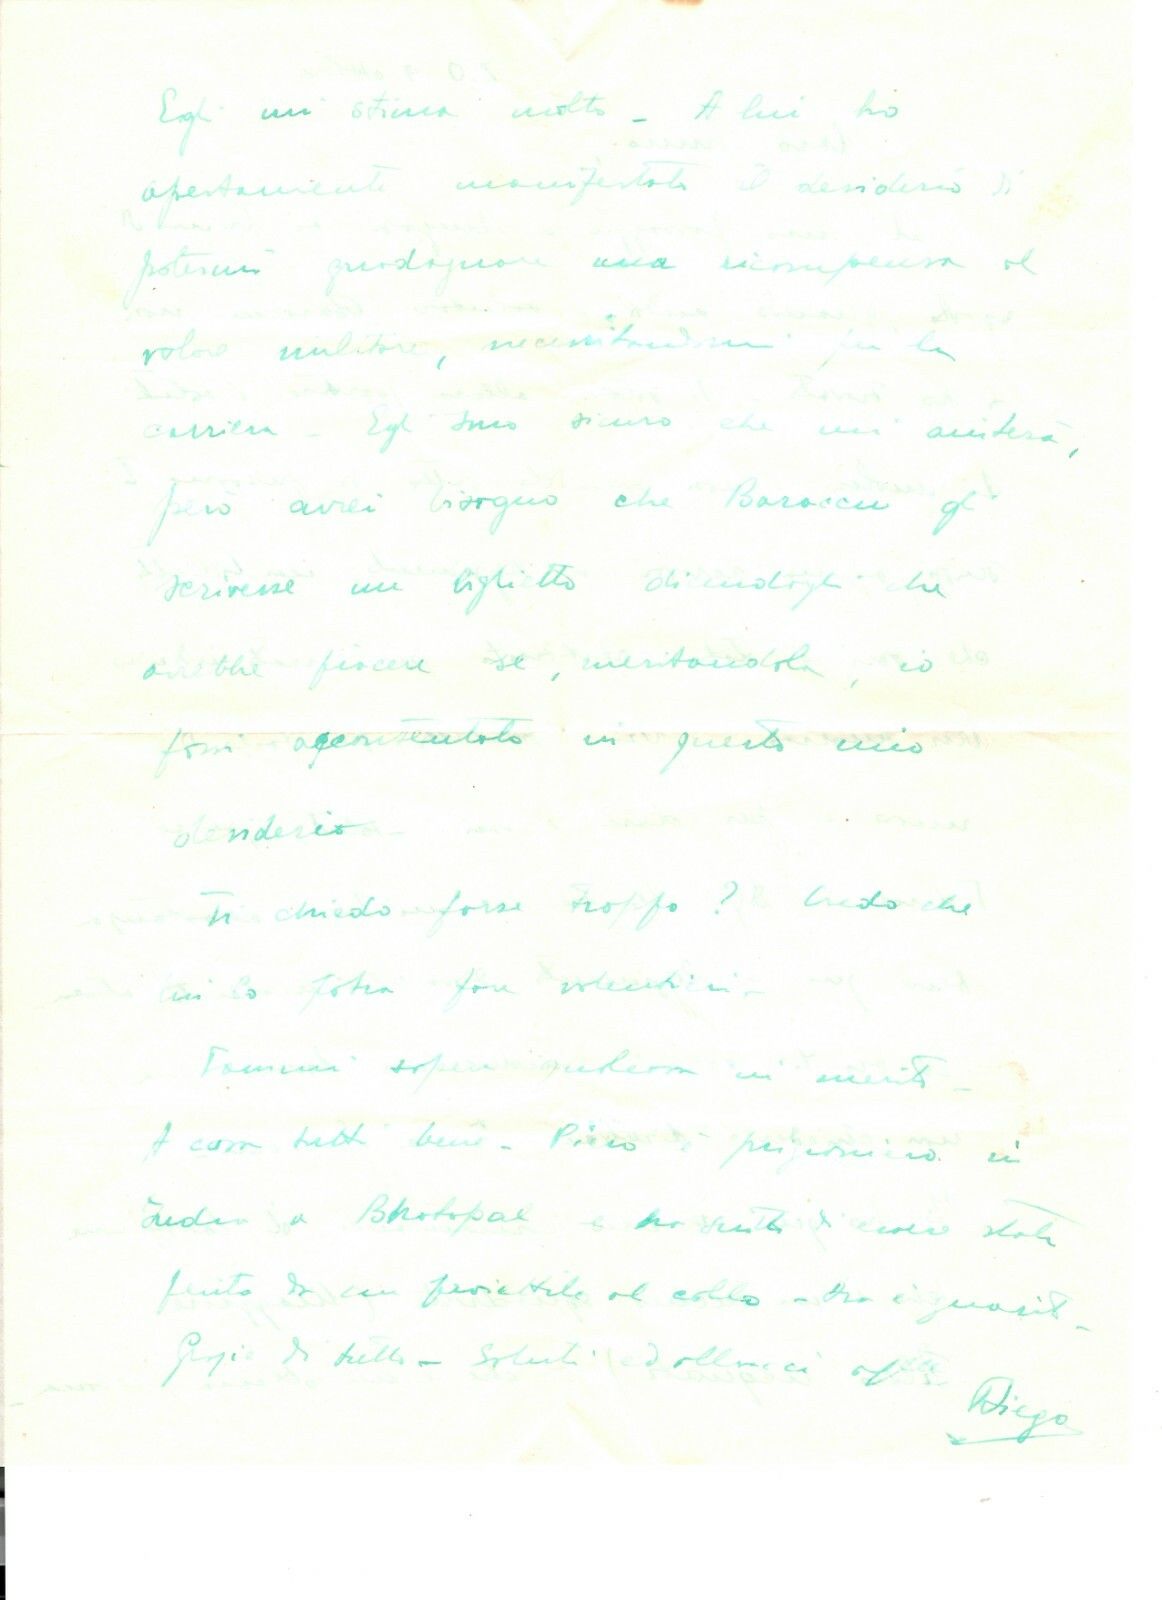 Egli mi stima molto - A lui ho
apertamente manifestato il desiderio di
potermi guadagnare una ricompensa al
valore militare, necessitandomi per la
carriera - Egli sono sicuro che mi aiuterà,
però avrei bisogno che Baraccu gli
scrivesse un biglietto dicendogli che
avrebbe piacere se, meritandola, io
fossi accontentato in questo mio
desiderio
Ti chiedo forse troppo? Credo che
lui lo potrà fare volentieri -
Fammi sapere qualcosa in merito -
A casa tutti bene - Piero è prigioniero in
India a Bhotopal e ha scritto di essere stato
ferito da un proiettile al collo - Ora è guarito -
Grazie di tutto - Saluti ed abbracci aff
Diego